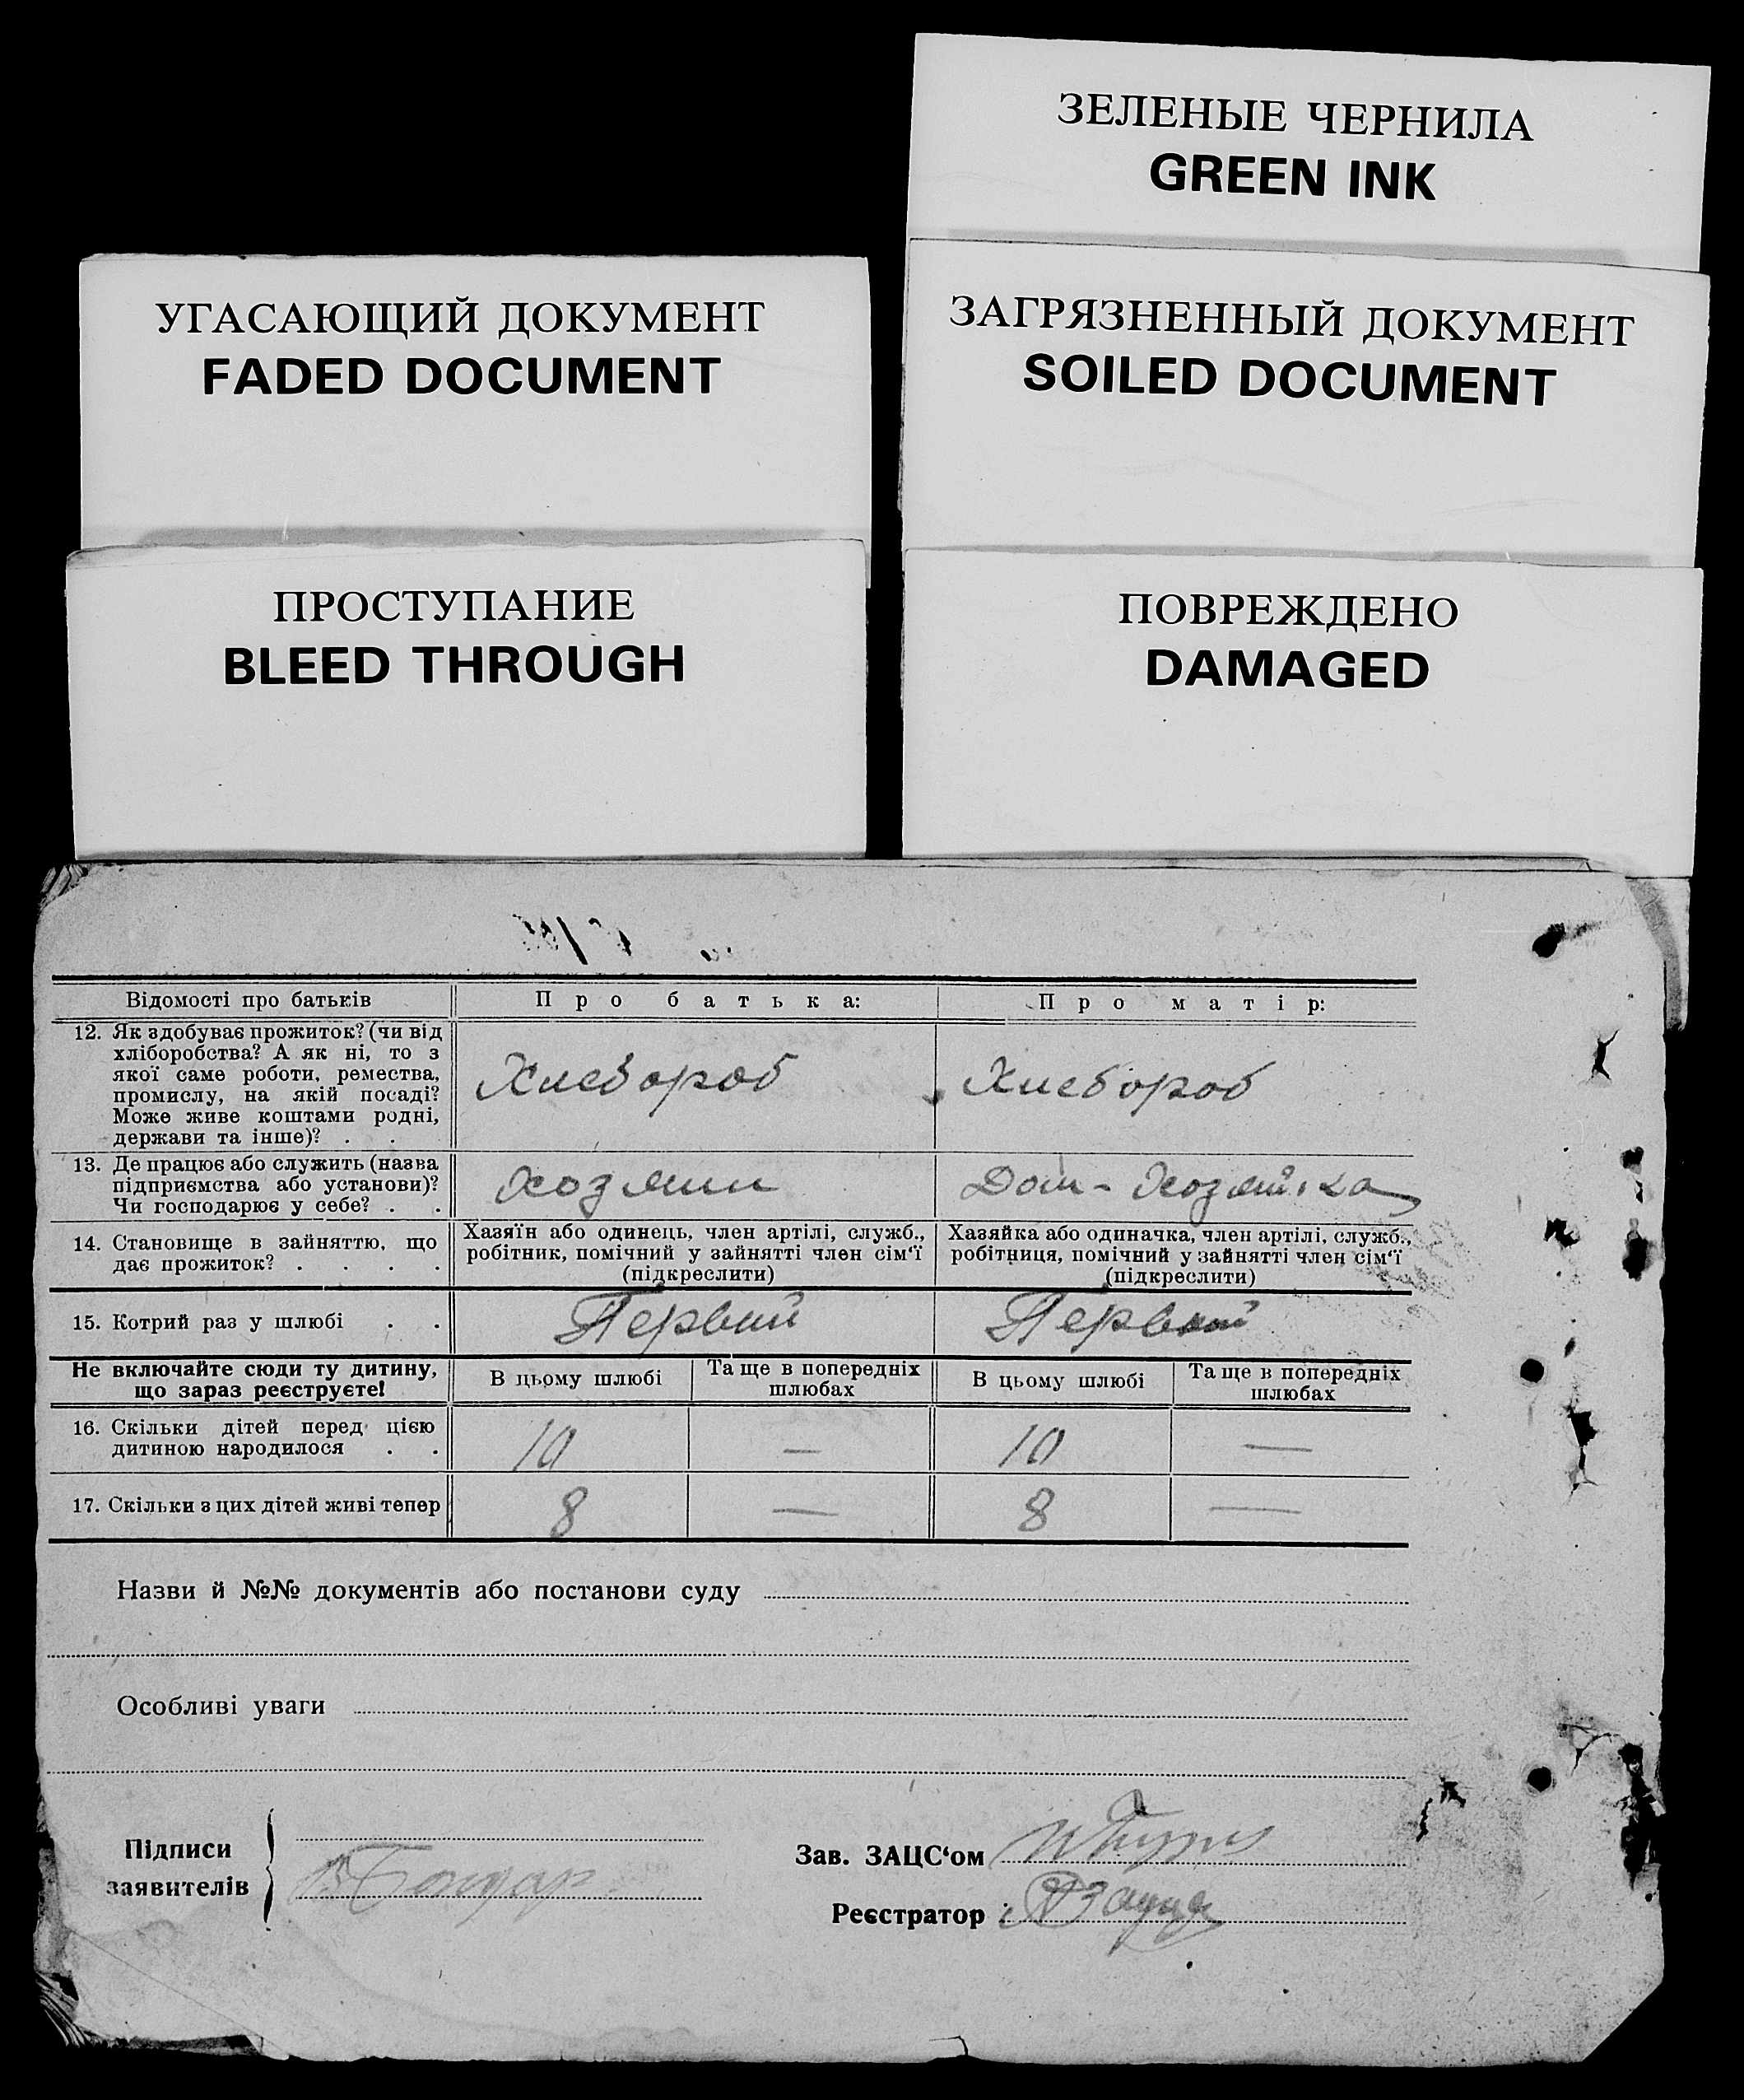 ЗЕЛЕНЫЕ ЧЕРНИЛА
GREEN INK
УГАСАЮЩИЙ ДОКУМЕНТ
FADED DOCUMENT
ЗАГРЯЗНЕННЫЙ ДОКУМЕНТ
SOILED DOCUMENT
ПРОСТУПАНИЕ
BLEED THROUGH
ПОВРЕЖДЕНО
DAMAGED
Відомості про батьків
Про батька:
Про матір:
12. Як здобуває прожиток? (чи від
хліборобства? А як ні, то з
якої саме роботи, ремества,
промислу, на якій посаді?
Може живе коштами родні,
держави та інше)? . .
Хлебороб
Хлебороб
13. Де працює або служить (назва
підприємства або установи)?
Чи господарює у себе? . .
Хозяин
Дом-Хозяйка
14. Становище в зайняттю, що
дає прожиток? . . . .
Хазяїн або одинець, член артілі, служб.,
робітник, помічний у зайнятті член сім‘ї
(підкреслити)
Хазяйка або одиначка, член артілі, служб.,
робітниця, помічний у зайнятті член сім‘ї
(підкреслити)
15. Котрий раз у шлюбі . .
Первий
Первий
Не включайте сюди ту дитину,
що зараз реєструєте!
В цьому шлюбі
Та ще в попередніх
шлюбах
В цьому шлюбі
Та ще в попередніх
шлюбах
16. Скільки дітей перед цією
дитиною народилося . .
10
—
10
—
17. Скільки з цих дітей живі тепер
8
—
8
—
Назви й №№ документів або постанови суду
Особливі уваги
Підписи
заявителів
Бондар
Зав. ЗАЦС‘ом
Реєстратор